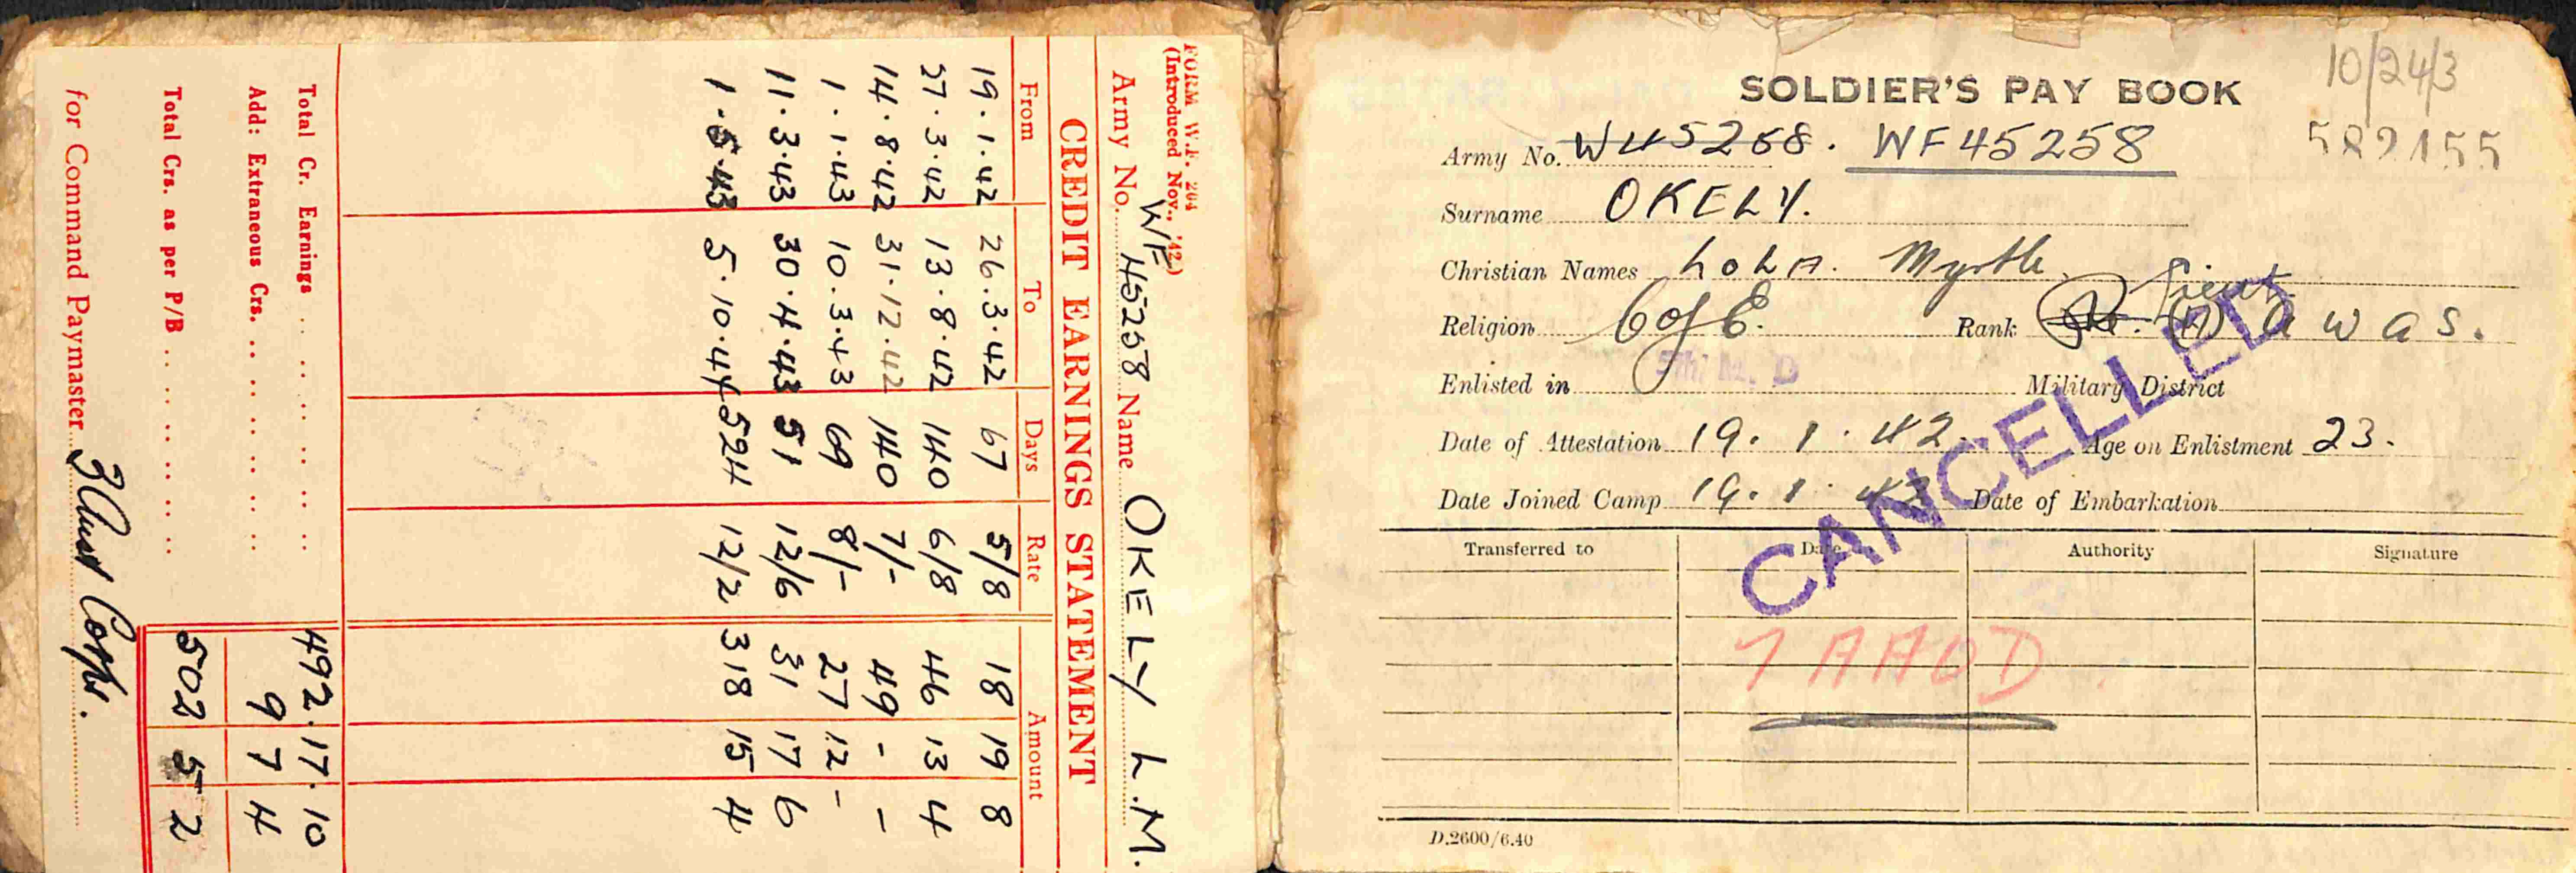 FORM W.F. 264
(Introduced Nov., '42.)
Army No. WF 45258 Name OKELY L.M.
CREDIT EARNINGS STATEMENT
From To Days Rate Amount
19.1.42 26.3.42 67 5/8 18 19 8
27.3.42 13.8.42 140 6/8 46 13 4
14.8.42 31.12.42 140 7/- 49 - -
1.1.43 10.3.43 69 8/- 27 12 -
11.3.43 30.4.43 51 12/6 31 17 6
1.5.43 5.10.44 524 12/2 318 15 4
Total Cr. Earnings .. .. .. .. .. 492.17.10
Add: Extraneous Crs. .. .. .. .. .. 9 7 4
Total Crs. as per P/B .. .. .. .. .. 502 5 2
for Command Paymaster 3 Aust Corps.
10/24/3
SOLDIER'S PAY BOOK
582155
Army No. W45258. WF45258
Surname OKELY.
Christian Names LOLA. Myrtle
Religion C of E. Rank Lieut A W A S.
Enlisted in 5th M. D Military District
Date of Attestation 19.1.42. Age on Enlistment 23.
Date Joined Camp 19.1.42 Date of Embarkation
CANCELLED
Transferred to Date Authority Signature
1 AAOD
D.2600/6.40